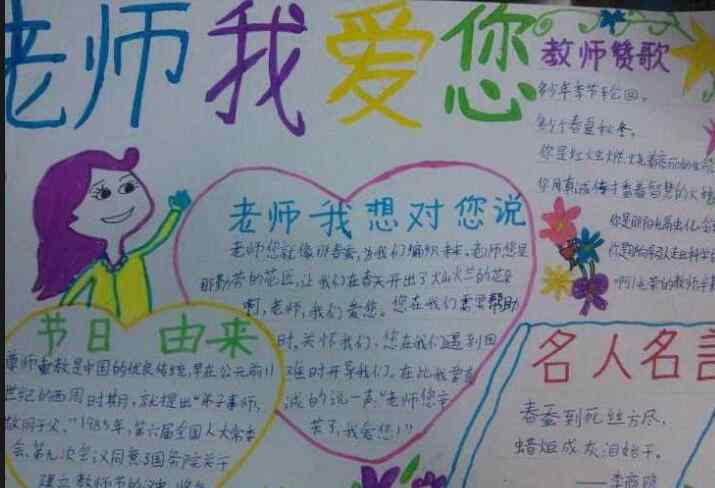 老师我爱您
教师赞歌
多少年季节轮回,
多少个春夏秋冬,
你是红烛燃烧着亮丽的生
你用真诚
智慧的火
啊!光荣的教师
老师我想对您说
老师您就像
,为我们编织未来。老师您是
那勤劳的花匠,让我们在春天开出了灿烂的花朵
啊,老师,我们爱您。您在我们需要帮助
时,关怀我们,您在我们遇到困
难时开导我们。在此我要真
诚的说一声“老师您辛
苦了,我爱您!”
节日由来
尊师重教是中国的优良传统,早在公元前11
世纪的西周时期,就提出“弟子事师,
敬同于父。”1985年,第六届全国人大常委
会第九次会议同意了国务院关于
建立教师节的议案
名人名言
春蚕到死丝方尽,
蜡炬成灰泪始干。
——李商隐